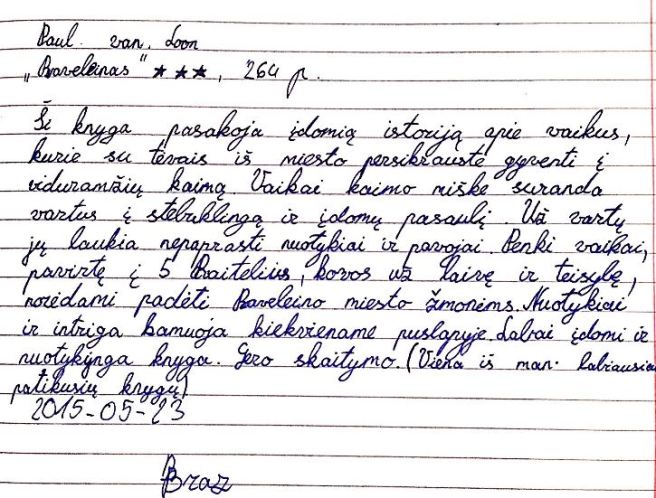 Paul. van. Loon
„Raveleinas" ★★★, 264 p.
Ši knyga pasakoja įdomią istoriją apie vaikus,
kurie su tėvais iš miesto persikraustė gyventi į
viduramžių kaimą. Vaikai kaimo miške suranda
vartus į stebuklingą ir įdomų pasaulį. Už vartų
jų laukia nepaprasti nuotykiai ir pavojai. Penki vaikai,
pavirtę į 5 Raitelius, kovos už laivę ir teisybę,
norėdami padėti Raveleino miesto žmonėms. Nuotykiai
ir intriga kamuoja kiekviename puslapyje. Labai įdomi ir
nuotykinga knyga. Gero skaitymo. (Viena iš man. labiausiai
patikusių knygų)
2015-05-23